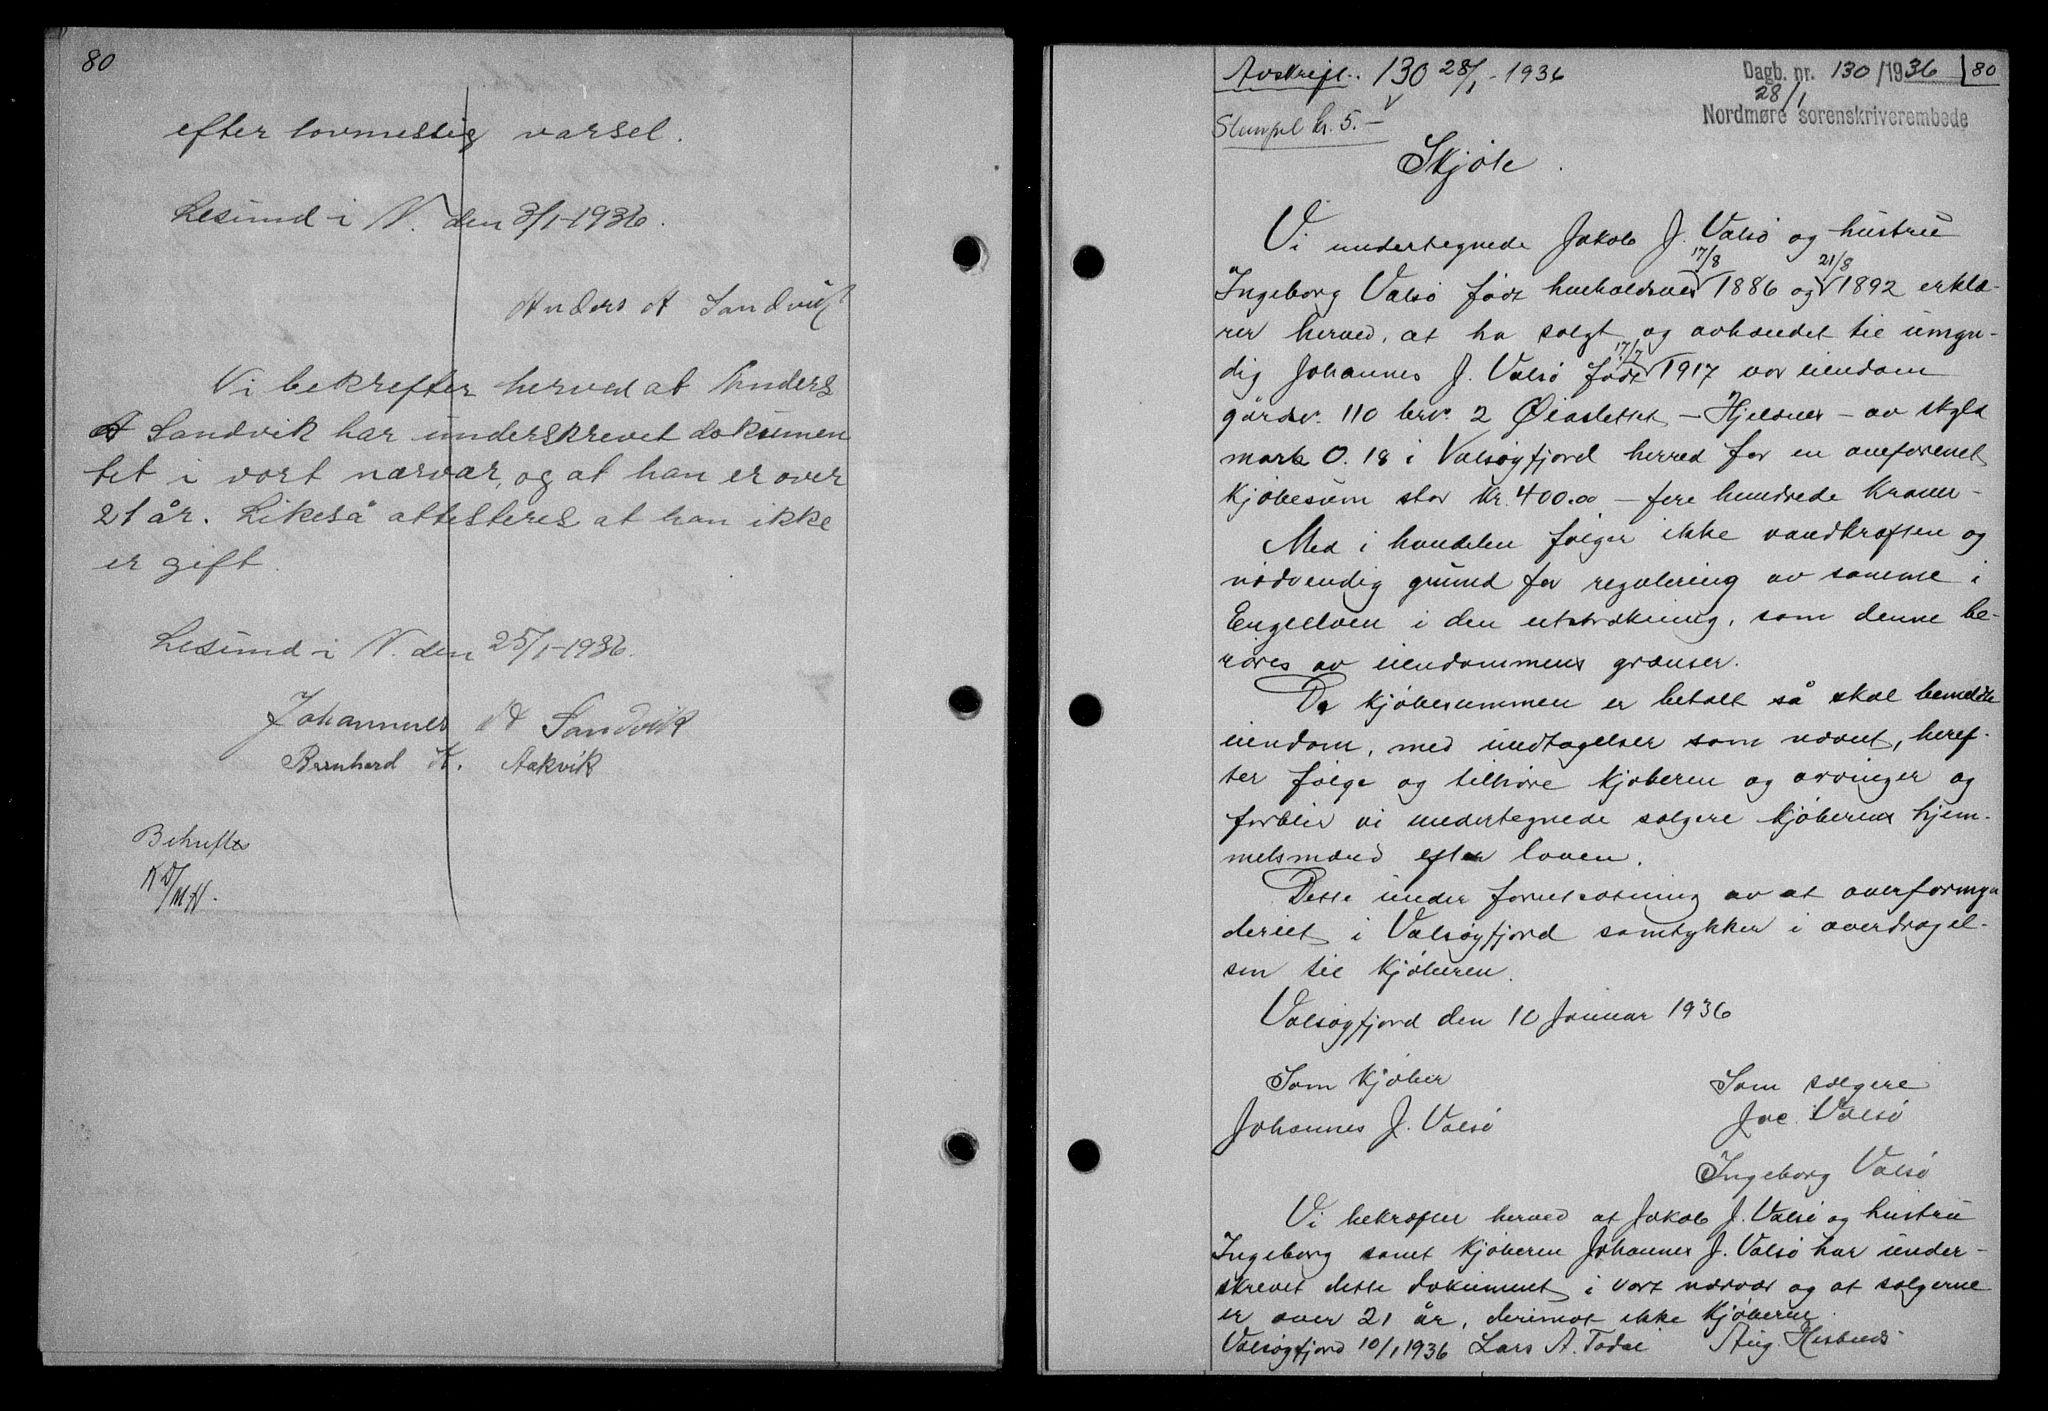 80
efter lovmessig varsel.
Lesund i N. den 3/1-1936.
Anders A Sandvik
Vi bekrefter herved at Anders
A Sandvik har underskrevet dokumen
tet i vort nærvær, og at han er over
21 år. Likeså attesteres at han ikke
er gift.
Lesund i N. den 25/1-1936.
Johannes A Sandvik
Bernhard K. Aakvik
Bekreftes
Avskrift. 130 28/1-1936
Dagb. nr. 130/1936 80
28/1
Nordmøre sorenskriverembede
Stempel kr. 5.-
Skjøte.
Vi undertegnede Jakob J. Valsø og hustru
17/8 21/8
Ingeborg Valsø født henholdsvis 1886 og 1892 erklæ-
rer herved, at ha solgt og avhændet til umyn-
17/7
dig Johannes J. Valsø født 1917 vor eiendom
gårdsnr. 110 brnr. 2 Øiaslettet - Hjelsnes - av skyld
mark 0.18 i Valsøyfjord herred for en omforenet
kjøbesum stor kr. 400.00 - fire hundrede kroner -
Med i handelen følger ikke vandkraften og
nødvendig grund for regulering av samme i
Engelven i den utstrækning, som denne be-
røres av eiendommens grænser.
Da kjøbesummen er betalt så skal bemeldte
eiendom, med undtagelser som nævnt, heref-
ter følge og tilhøre kjøberen og arvinger og
forblir vi undertegnede sælgere kjøberens hjem-
melsmænd efter loven.
Dette under forutsætning av at overformyn
deriet i Valsøyfjord samtykker i overdragel-
sen til kjøberen.
Valsøyfjord den 10 Januar 1936
Som kjøber
Som sælgere
Johannes J. Valsø
Jac. Valsø
Ingeborg Valsø
Vi bekræfter herved at Jakob J. Valsø og hustru
Ingeborg samt kjøberen Johannes J. Valsø har under-
skrevet dette dokument i vort nærvær og at sælgerne
er over 21 år, derimot ikke kjøberen.
Valsøyfjord 10/1 1936 Lars A. Todal Aug.